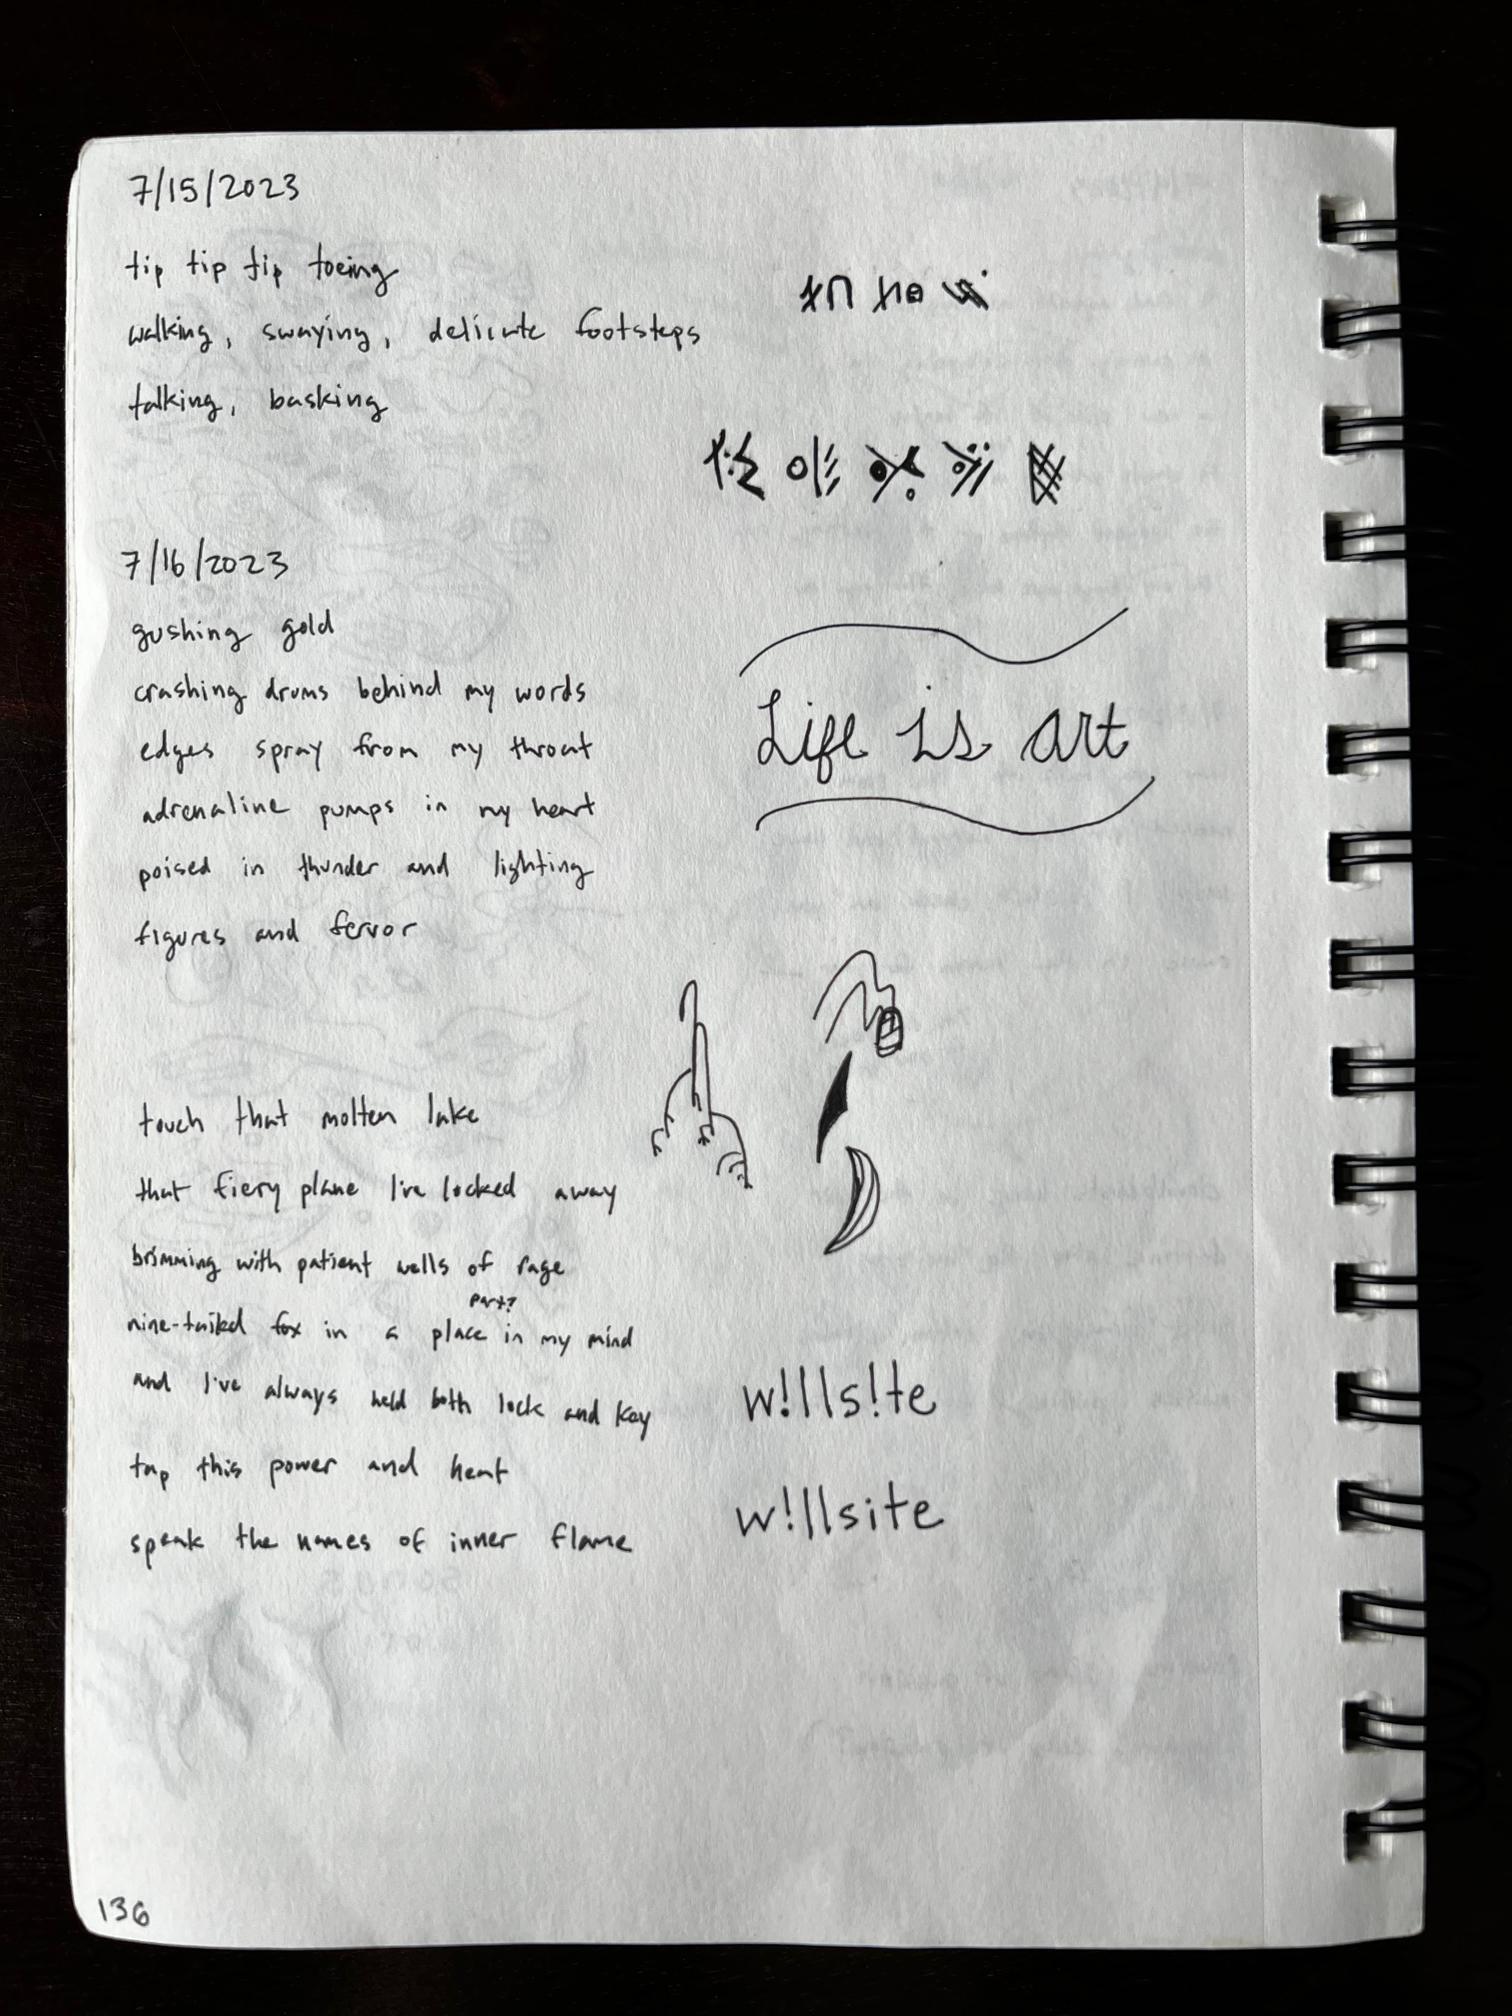 7/15/2023
tip tip tip toeing
walking, swaying, delicate footsteps
talking, basking
7/16/2023
gushing gold
crashing drums behind my words
edges spray from my throat
adrenaline pumps in my heart
poised in thunder and lighting
figures and fervor
Life is art
touch that molten lake
that fiery plane I've locked away
brimming with patient wells of rage
part?
nine-tailed fox in a place in my mind
and I've always held both lock and key
tap this power and heat
speak the names of inner flame
w!lls!te
w!llsite
136